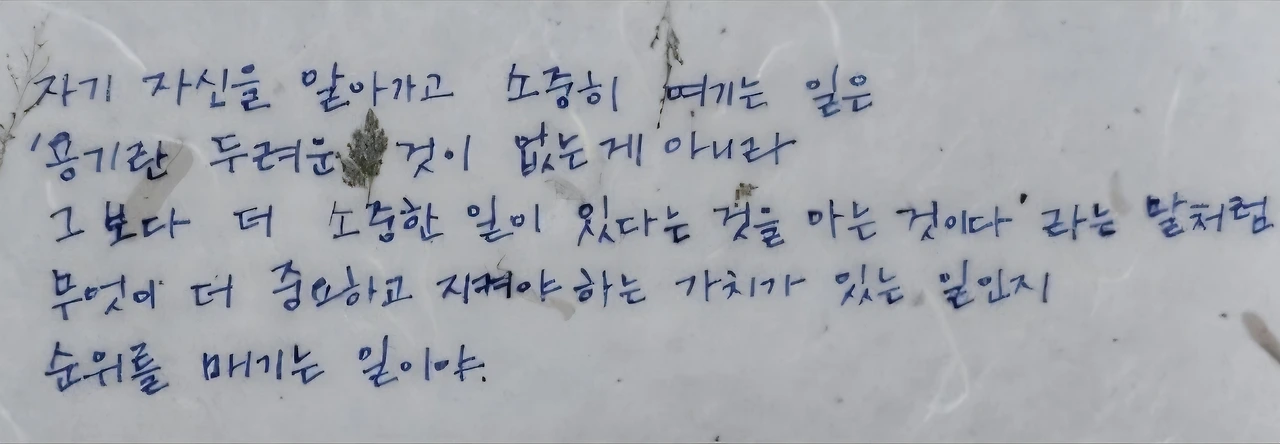 자기 자신을 알아가고 소중히 여기는 일은
'용기란 두려운 것이 없는게 아니라
그보다 더 소중한 일이 있다는 것을 아는 것이다' 라는 말처럼
무엇이 더 중요하고 지켜야 하는 가치가 있는 일인지
순위를 매기는 일이야.